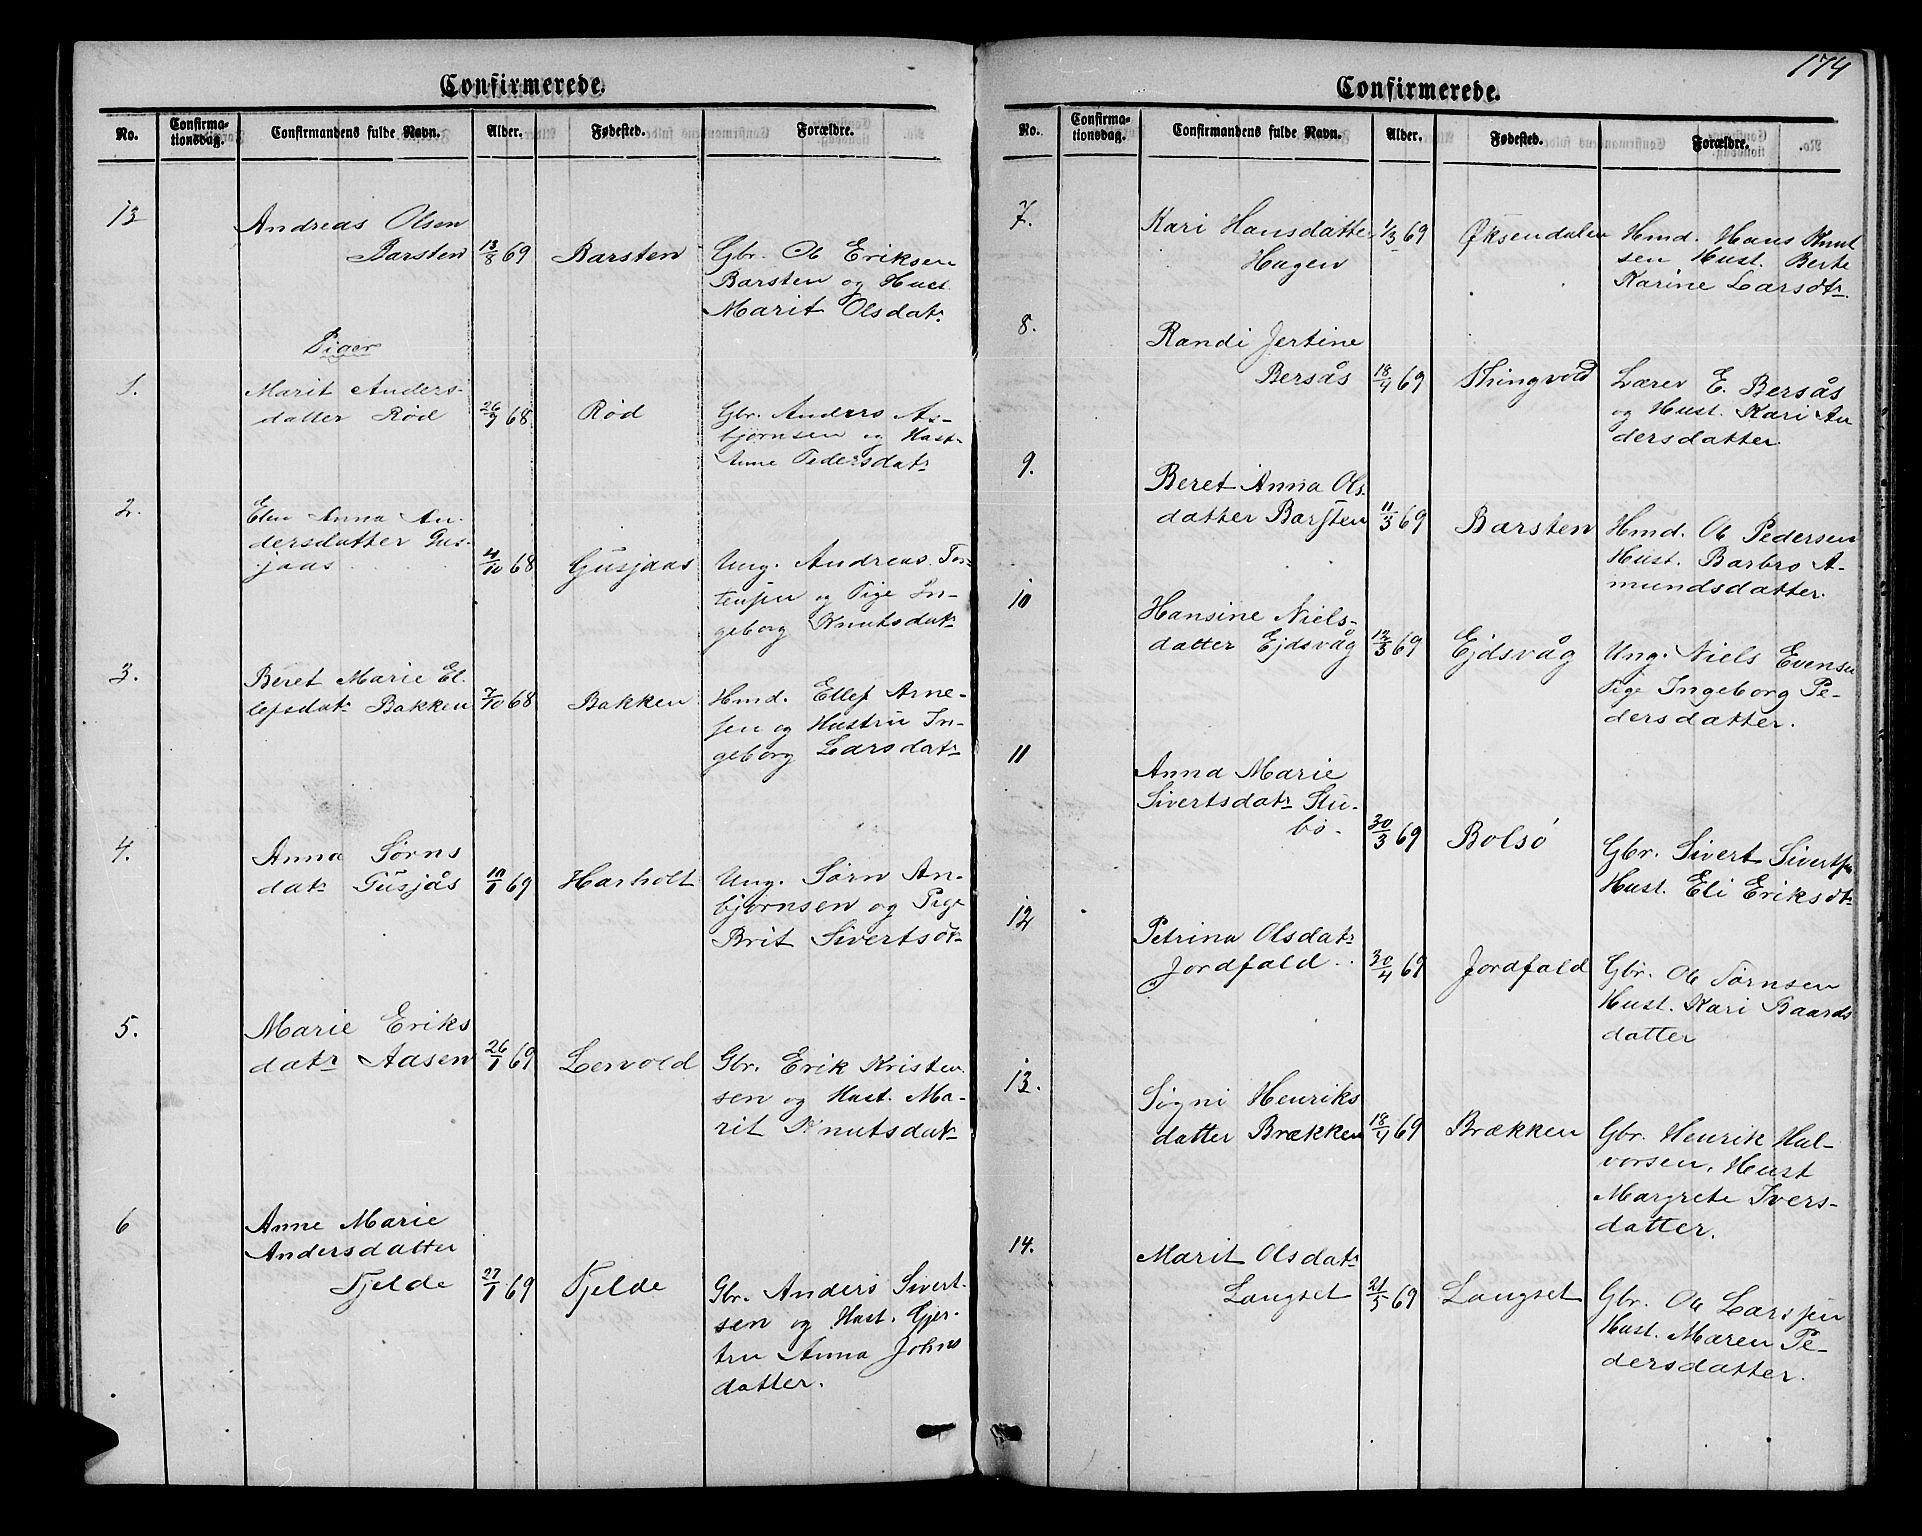 Confirmerede.
No. Confirma-tionsdag. Confirmandens fulde Navn. Alder. Fødested. Forældre.
13 Andreas Olsen
Barsten 13/8 69 Barsten Gbr. Ole Eriksen
Barsten og Hust.
Marit Olsdatr
Piger
1. Marit Anders-
datter Rød 26/9 68 Rød Gbr. Anders As-
bjørnsen og Hust.
Anne Pedersdatr
2. Elen Anna An-
dersdatter Gus-
jaas 4/10 68 Gusjaas Ung. Andreas Tor-
og Pige In-
geborg Knutsdatr
3. Beret Marie El-
lefsdatr Bakken 7/10 68 Bakken Hmd. Ellef Arne-
sen og Hustru In-
geborg Larsdatr
4. Anna Sørns
datr Gusjås 10/1 69 Harholt Ung. Sørn An-
bjørnsen og Pige
Brit Sivertsdtr
5. Marie Eriks
datr Aasen 26/1 69 Lervold Gbr. Erik Kristen
sen og Hust. Ma-
rit Knutsdatr
6 Anne Marie
Andersdatter
Fjelde 27/1 69 Fjelde Gbr. Anders Sivert-
sen og Hust. Gjer-
tru Anna Johns
datter.
174
Confirmerede.
No. Confirma-tionsdag. Confirmandens fulde Navn. Alder. Fødested. Forældre.
7. Kari Hansdatter 1/3 69 Øksendalen Hmd. Hans Knut
Hagen sen Hust. Berte
Karine Larsdtr.
8. Randi Jertine
Bersås 18/4 69 Thingvold Lærer E. Bersås
og Hust. Kari An
dersdatter.
9. Beret Anna Ols.
datter Barsten 11/3 69 Barsten Hmd. Ole Pedersen
Hust. Barbro A-
mundsdatter.
10 Hansine Niels-
datter Ejdsvåg 12/3 69 Ejdsvåg Ung. Niels Evensen
Pige Ingeborg Pe-
dersdatter.
11 Anna Marie
Sivertsdatr Stu-
bø. 30/3 69 Bolsø Gbr. Sivert Sivertsen
Hust. Eli Eriksdtr
12 Petrina Olsdatr
Jordfald 30/4 69 Jordfald Gbr. Ole Sørnsen
Hust. Kari Baards
datter
13. Signi Henriks
datter Brækken 18/4 69 Brækken Gbr. Henrik Hal-
vorsen, Hust
Margrete Ivers-
datter.
14. Marit Olsdatr
Langset 21/5 69 Langset Gbr. Ole Larssen
Hust. Maren Pe-
dersdatter.